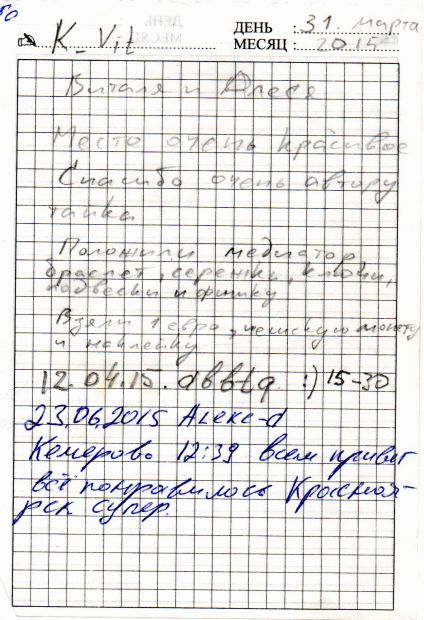 K_Vit
ДЕНЬ : 31. марта
МЕСЯЦ : 2015
Виталя и Олеся
Место очень красивое
Спасибо очень автору
тайка
Положили медиатор,
браслет, сережка, ключи,
подвески и фишку
Взяли 1 евро, чешскую монету
и наклейку
12.04.15. :) 15-30
23.06.2015 Алекс-d
Кемерово 12:39 всем привет
всё понравилось Красноя-
рск супер.